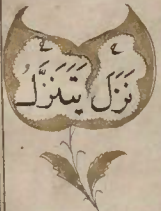 نَزَلَ يَتَنَزَّلُ